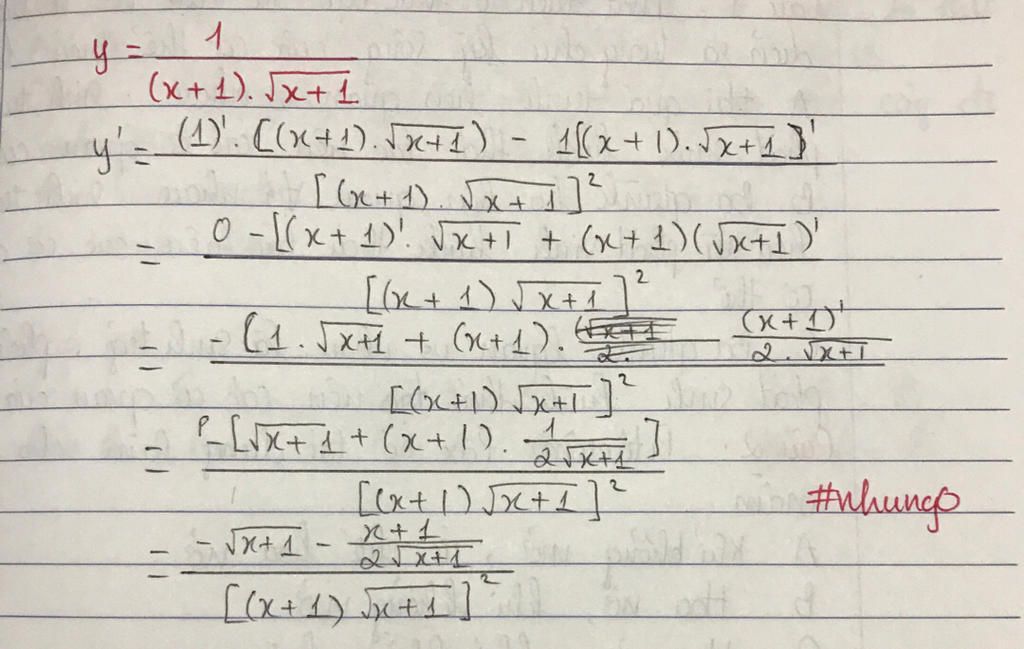 y = 1 / (x+1).√(x+1)
y' = (1)'.[(x+1).√(x+1)) − 1[(x+1).√(x+1)]' / [(x+1).√(x+1)]²
= 0 − [(x+1)'.√(x+1) + (x+1)(√(x+1))' / [(x+1)√(x+1)]²
= −(1.√(x+1) + (x+1). (x+1)' / 2.√(x+1) / [(x+1)√(x+1)]²
= −[√(x+1) + (x+1). 1 / 2√(x+1)] / [(x+1)√(x+1)]²
#nhungo
= −√(x+1) − (x+1) / 2√(x+1) / [(x+1)√(x+1)]²